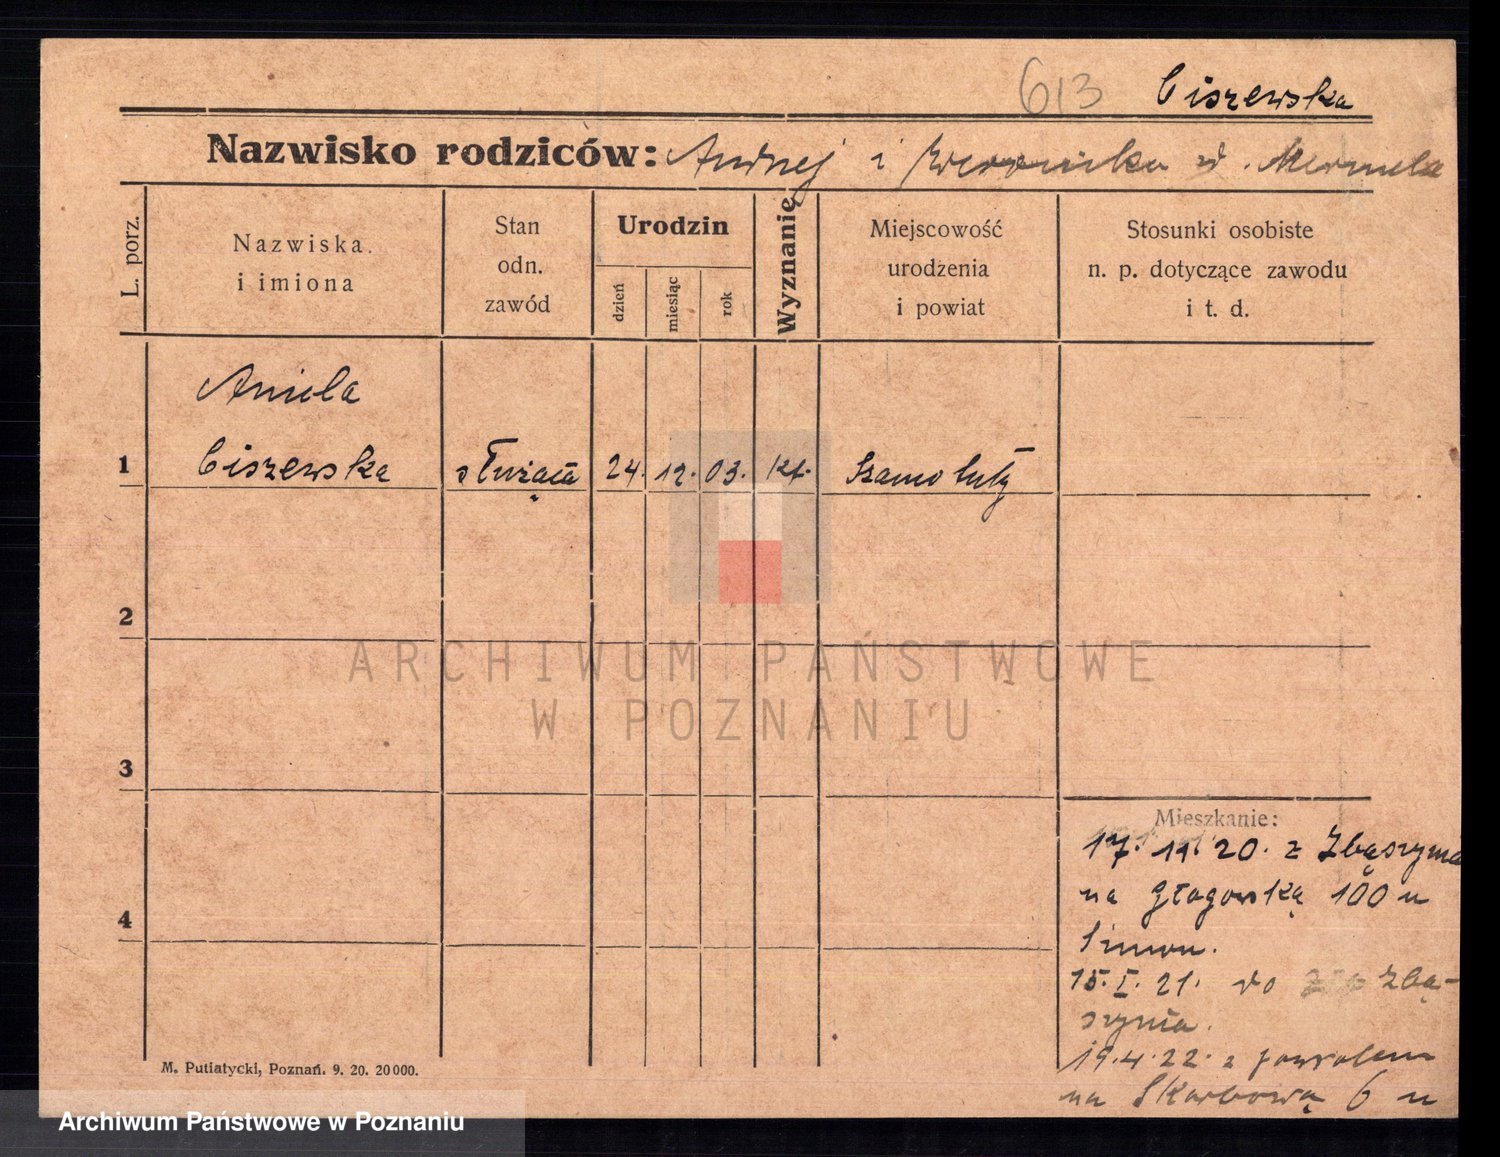 613 Ciszewska
Nazwisko rodziców: Andrzej i Weronika zd.
L. porz.
Nazwiska.
i imiona
Stan
odn.
zawód
Urodzin
dzień
miesiąc
rok
Wyznanie
Miejscowość
urodzenia
i powiat
Stosunki osobiste
n. p. dotyczące zawodu
i t. d.
Aniela
1 Ciszewska służąca 24. 12. 03. kt. Szamotuły
2
ARCHIWUM PAŃSTWOWE
W POZNANIU
3
Mieszkanie:
17. 11. 20. z Zbąszynia
na Głogowską 100 u
Simon.
15. I. 21. do Zbą-
szynia.
4
19.4.22. z
na Skarbową 6 u
M. Putiatycki, Poznań. 9. 20. 20 000.
Archiwum Państwowe w Poznaniu